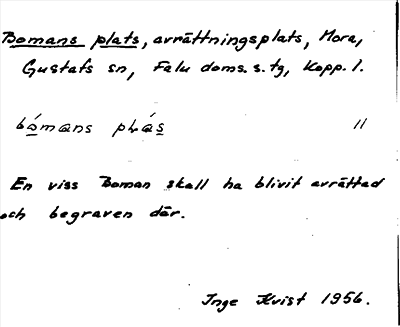 Bomans plats, avrättningsplats, Mora,
Gustafs sn, Falu doms.s.tg, Kopp. l.
bómans plás 11
En viss Boman skall ha blivit avrättad
och begraven där.
Inge Kvist 1956.